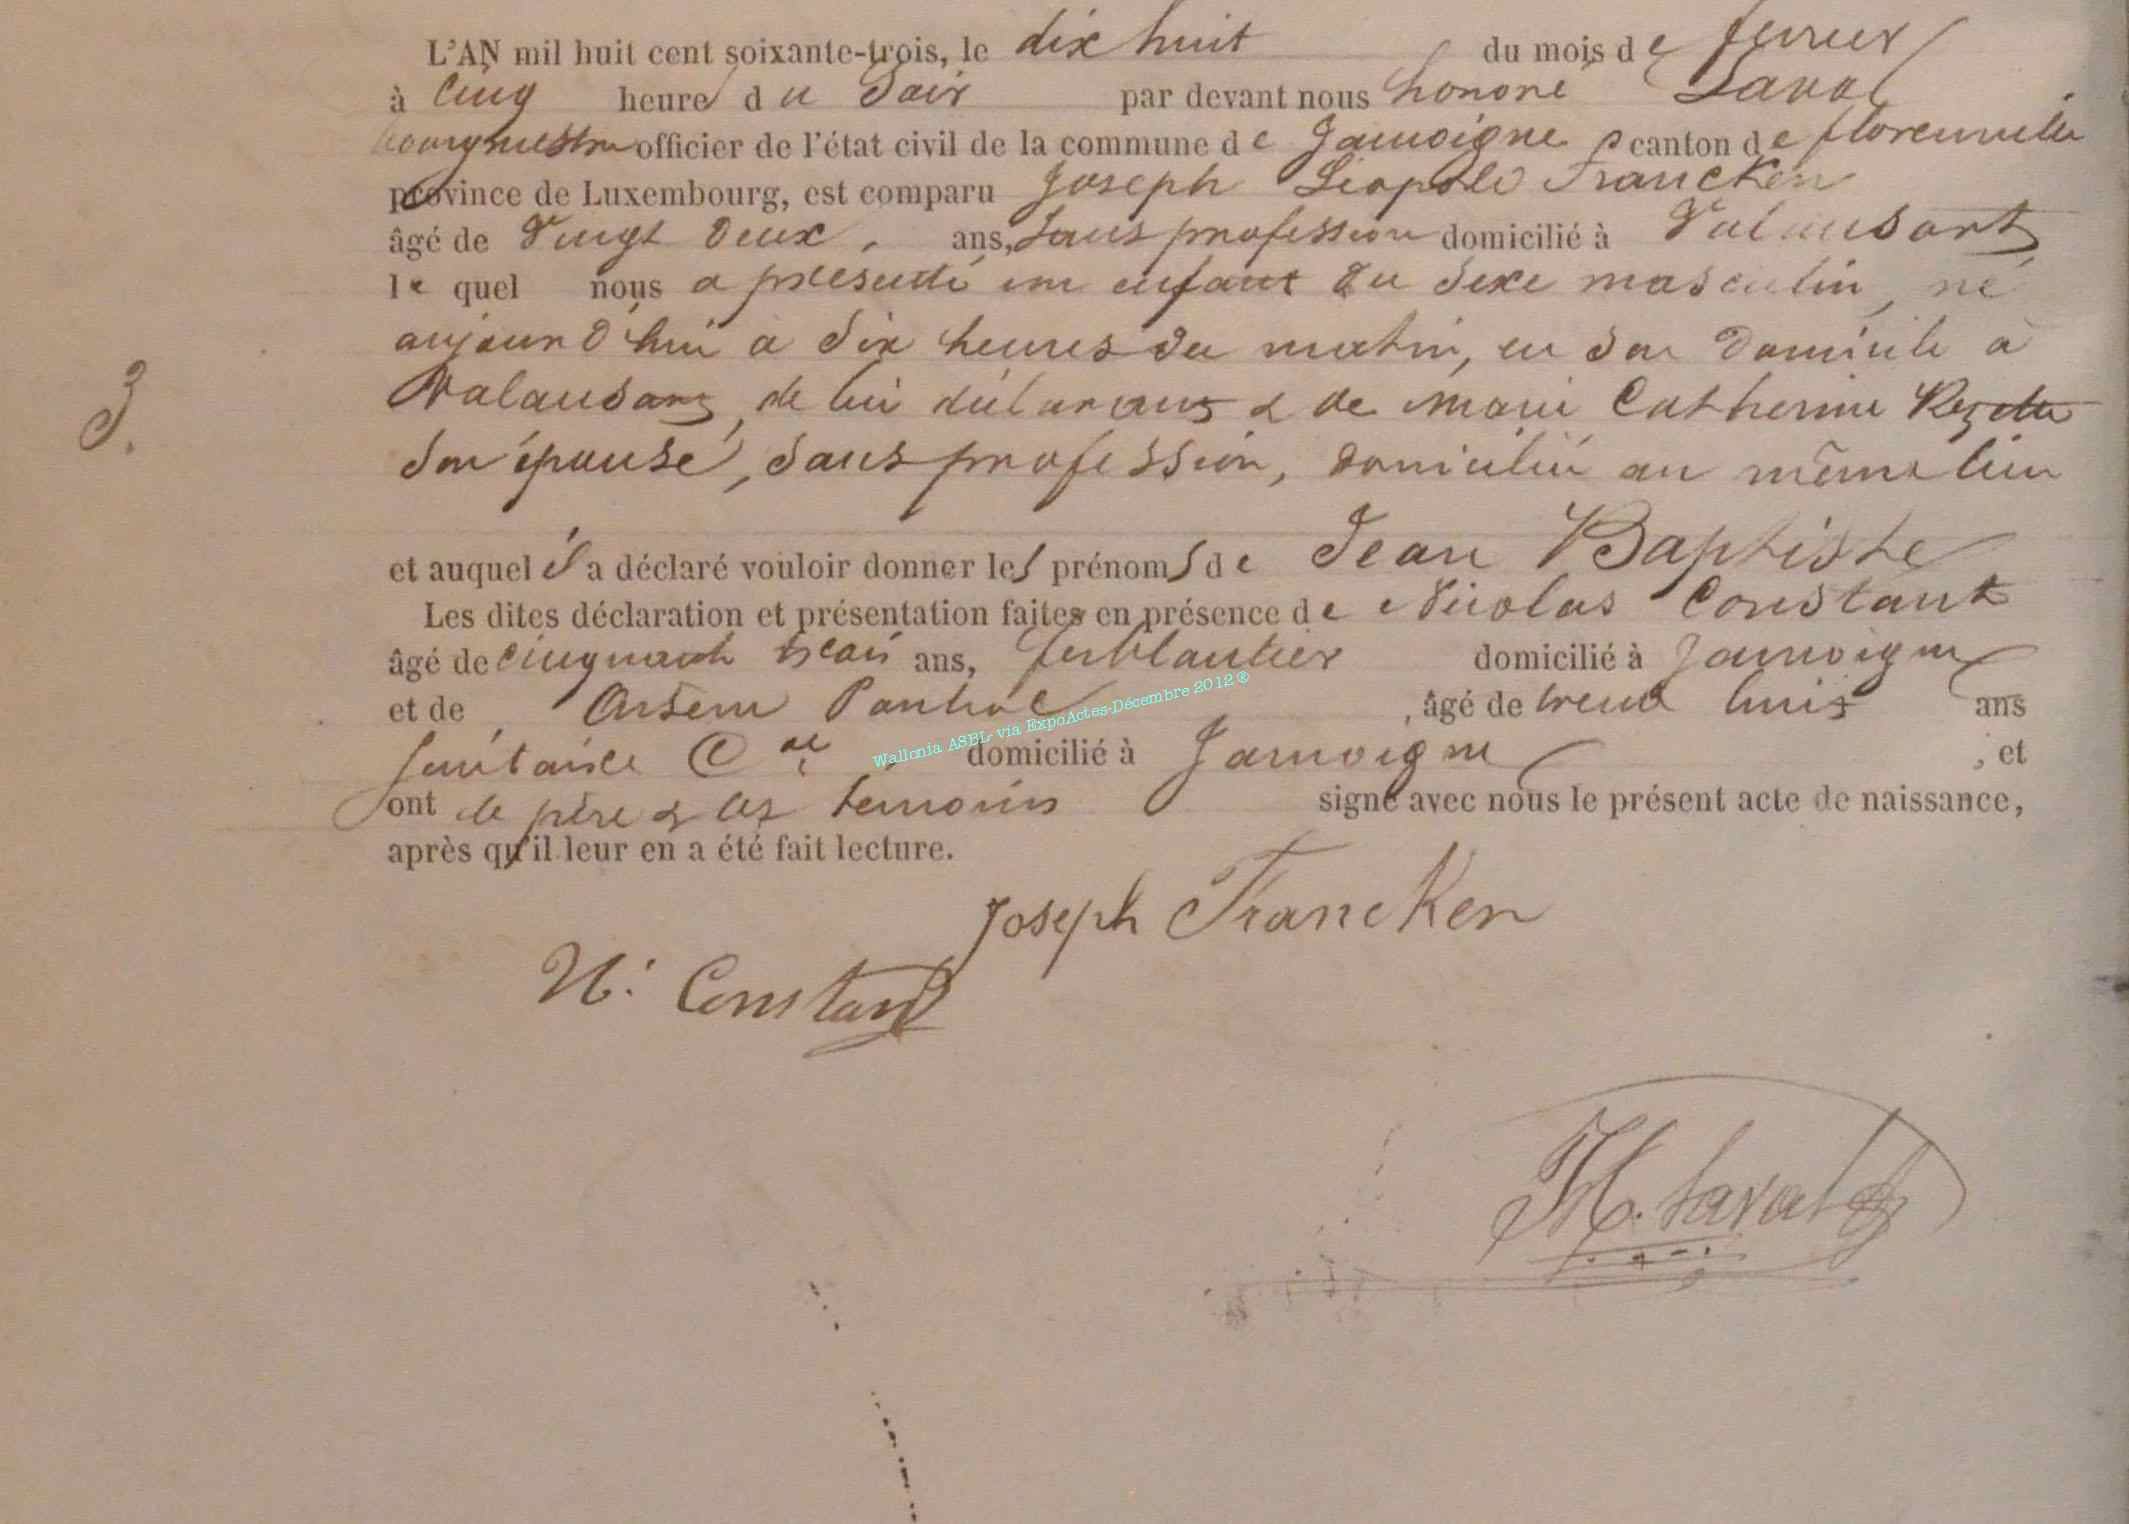 L'AN mil huit cent soixante-trois, le dix huit du mois de fevrier
à cinq heures du Soir par devant nous honoré Laval
bourgmestre officier de l'état civil de la commune de Jamoigne canton de florenville
province de Luxembourg, est comparu Joseph Léopold Francken
âgé de Vingt Deux, ans, Sans profession domicilié à Valansart
lequel nous a présenté un enfant du Sexe masculin, né
aujourd'hui à dix heures du matin, en son Domicile à
Valansart, de lui déclarant & de Marie Catherine
3.
son épouse, sans profession, domiciliée au même lieu
et auquel il a déclaré vouloir donner les prénoms de Jean Baptiste
Les dites déclaration et présentation faites en présence de Nicolas Constant
âgé de cinquante trois ans, ferblantier domicilié à Jamoigne
et de Arsene , âgé de trente huit ans
domicilié à Jamoigne ; et
ont le père & les témoins signé avec nous le présent acte de naissance,
après qu'il leur en a été fait lecture.
Joseph Francken
N: Constant
H. Laval
Wallonia ASBL- via ExpoActes-Décembre 2012 ®